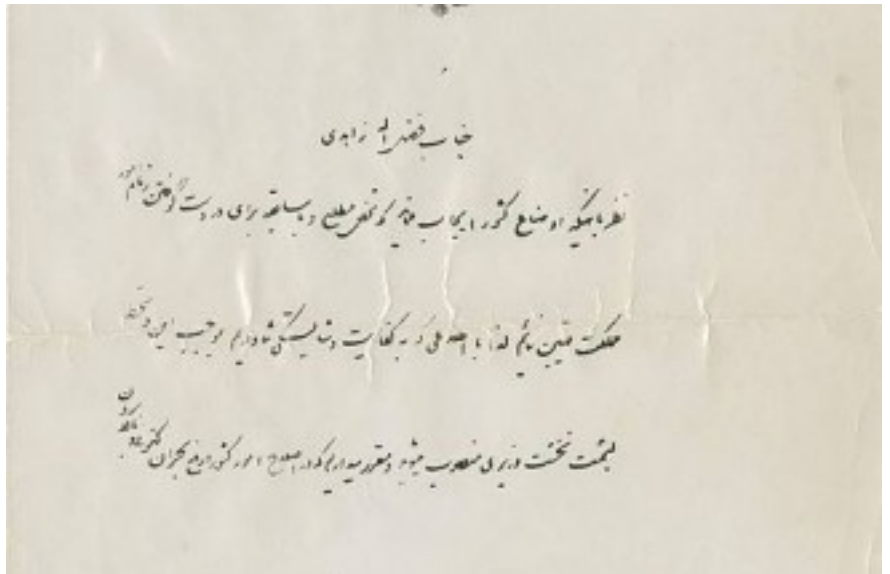 جناب فضل اله زاهدی
نظر باینکه اوضاع کشور ایجاب مینماید که شخص مطلع و با سابقه برای در دست گرفتن زمام امور
مملکت تعیین نمائیم لذا با اطلاعی که به کفایت و شایستگی شما داریم بموجب این دستخط
بسمت نخست وزیری منصوب میشوید و مقرر میداریم که در اصلاح امور کشور و رفع بحران کنونی و